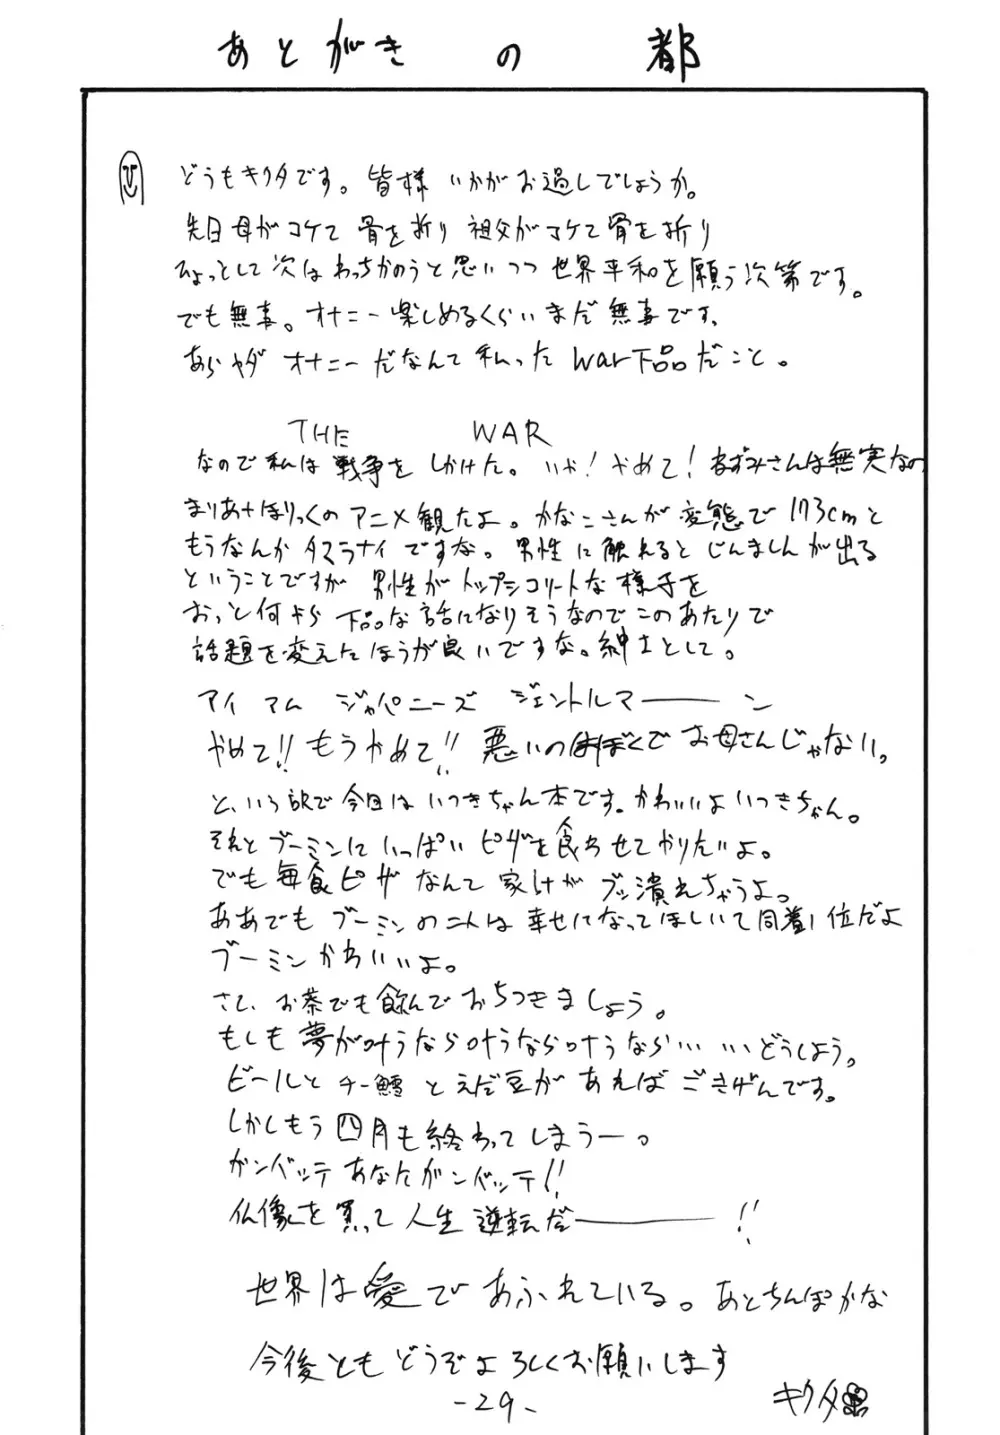 あとがきの都
どうもキクタです。皆様いかがお過しでしょうか。
先日母がコケて骨を折り祖父がコケて骨を折り
ひょっとして次はわっちかのうと思いつつ世界平和を願う次第です。
でも無事。オナニー楽しめるくらいまだ無事です。
あらヤダオナニーだなんて私ったwar下品だこと。
THE WAR
なので私は戦争をしかけた。いや!やめて!ねずみさんは無実なの
まりあ†ほりっくのアニメ観たよ。かなこさんが変態で173cmと
もうなんかタマラナイですな。男性に触れるとじんましんが出る
ということですが男性がトップシコリートな様子を
おっと何やら下品な話になりそうなのでこのあたりで
話題を変えたほうが良いですな。紳士として。
アイ アム ジャパニーズ ジェントルマーーン
やめて!!もうやめて!!悪いのはぼくでお母さんじゃない。
と、いう訳で今日はいつきちゃん本です。かわいいよいつきちゃん。
それとブーミンにいっぱいピザを食わせてやりたいよ。
でも毎食ピザなんて家計がブッ潰れちゃうよっ
ああでもブーミンの二人は幸せになってほしいて同着1位だよ
ブーミンかわいいよ。
さて、お茶でも飲んでおちつきましょう。
もしも夢が叶うなら叶うなら叶うなら……どうしよう。
ビールとチー鱈とえだ豆があればごきげんです。
しかしもう四月も終わってしまうー。
ガンバッテあなたガンバッテ!!
仏像を買って人生逆転だーー!!
世界は愛であふれている。あとちんぽかな
今後ともどうぞよろしくお願いします
キクタ
-29-